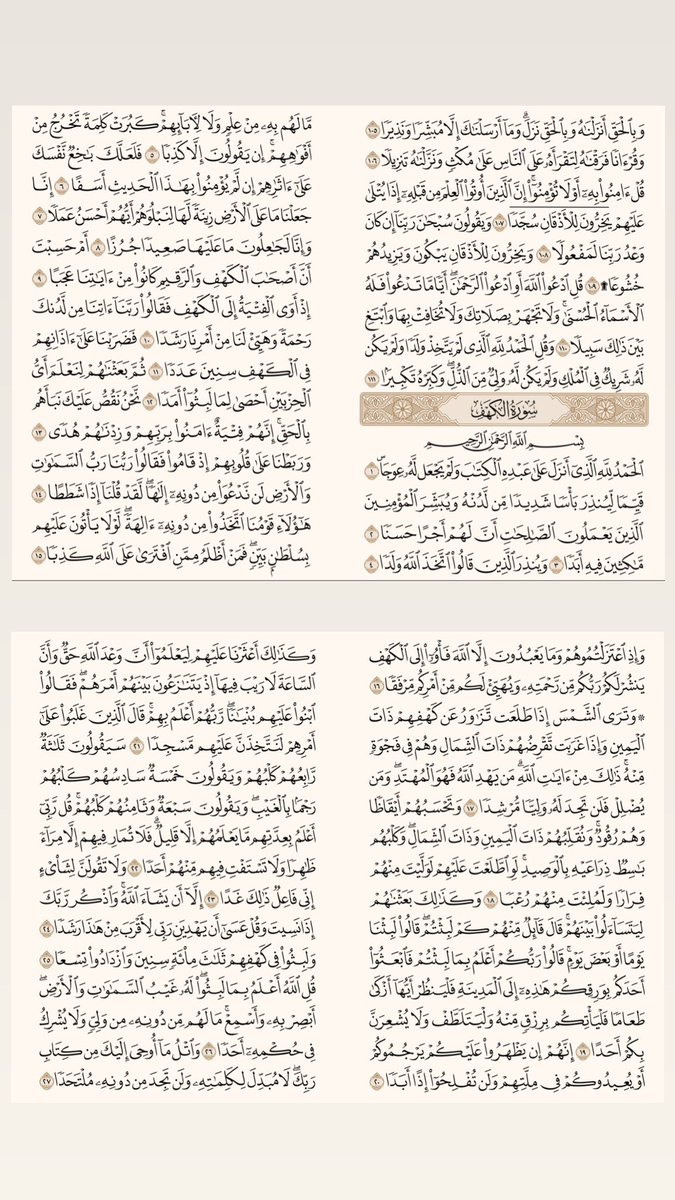 وَبِٱلْحَقِّ أَنزَلْنَٰهُ وَبِٱلْحَقِّ نَزَلَ ۗ وَمَآ أَرْسَلْنَٰكَ إِلَّا مُبَشِّرًا وَنَذِيرًا ١٠٥
وَقُرْءَانًا فَرَقْنَٰهُ لِتَقْرَأَهُۥ عَلَى ٱلنَّاسِ عَلَىٰ مُكْثٍ وَنَزَّلْنَٰهُ تَنزِيلًا ١٠٦
قُلْ ءَامِنُوا۟ بِهِۦٓ أَوْ لَا تُؤْمِنُوٓا۟ ۚ إِنَّ ٱلَّذِينَ أُوتُوا۟ ٱلْعِلْمَ مِن قَبْلِهِۦٓ إِذَا يُتْلَىٰ
عَلَيْهِمْ يَخِرُّونَ لِلْأَذْقَانِ سُجَّدًا ١٠٧ وَيَقُولُونَ سُبْحَٰنَ رَبِّنَآ إِن كَانَ
وَعْدُ رَبِّنَا لَمَفْعُولًا ١٠٨ وَيَخِرُّونَ لِلْأَذْقَانِ يَبْكُونَ وَيَزِيدُهُمْ
خُشُوعًا ۩ ١٠٩ قُلِ ٱدْعُوا۟ ٱللَّهَ أَوِ ٱدْعُوا۟ ٱلرَّحْمَٰنَ ۖ أَيًّا مَّا تَدْعُوا۟ فَلَهُ
ٱلْأَسْمَآءُ ٱلْحُسْنَىٰ ۚ وَلَا تَجْهَرْ بِصَلَاتِكَ وَلَا تُخَافِتْ بِهَا وَٱبْتَغِ
بَيْنَ ذَٰلِكَ سَبِيلًا ١١٠ وَقُلِ ٱلْحَمْدُ لِلَّهِ ٱلَّذِى لَمْ يَتَّخِذْ وَلَدًا وَلَمْ يَكُن
لَّهُۥ شَرِيكٌ فِى ٱلْمُلْكِ وَلَمْ يَكُن لَّهُۥ وَلِىٌّ مِّنَ ٱلذُّلِّ ۖ وَكَبِّرْهُ تَكْبِيرًۢا ١١١
سُورَةُ الكَهْفِ
بِسْمِ ٱللَّهِ ٱلرَّحْمَٰنِ ٱلرَّحِيمِ
ٱلْحَمْدُ لِلَّهِ ٱلَّذِىٓ أَنزَلَ عَلَىٰ عَبْدِهِ ٱلْكِتَٰبَ وَلَمْ يَجْعَل لَّهُۥ عِوَجَا ۜ ١
قَيِّمًا لِّيُنذِرَ بَأْسًا شَدِيدًا مِّن لَّدُنْهُ وَيُبَشِّرَ ٱلْمُؤْمِنِينَ
ٱلَّذِينَ يَعْمَلُونَ ٱلصَّٰلِحَٰتِ أَنَّ لَهُمْ أَجْرًا حَسَنًا ٢
مَّٰكِثِينَ فِيهِ أَبَدًا ٣ وَيُنذِرَ ٱلَّذِينَ قَالُوا۟ ٱتَّخَذَ ٱللَّهُ وَلَدًا ٤
مَّا لَهُم بِهِۦ مِنْ عِلْمٍ وَلَا لِءَابَآئِهِمْ ۚ كَبُرَتْ كَلِمَةً تَخْرُجُ مِنْ
أَفْوَٰهِهِمْ ۚ إِن يَقُولُونَ إِلَّا كَذِبًا ٥ فَلَعَلَّكَ بَٰخِعٌ نَّفْسَكَ
عَلَىٰٓ ءَاثَٰرِهِمْ إِن لَّمْ يُؤْمِنُوا۟ بِهَٰذَا ٱلْحَدِيثِ أَسَفًا ٦ إِنَّا
جَعَلْنَا مَا عَلَى ٱلْأَرْضِ زِينَةً لَّهَا لِنَبْلُوَهُمْ أَيُّهُمْ أَحْسَنُ عَمَلًا ٧
وَإِنَّا لَجَٰعِلُونَ مَا عَلَيْهَا صَعِيدًا جُرُزًا ٨ أَمْ حَسِبْتَ
أَنَّ أَصْحَٰبَ ٱلْكَهْفِ وَٱلرَّقِيمِ كَانُوا۟ مِنْ ءَايَٰتِنَا عَجَبًا ٩
إِذْ أَوَى ٱلْفِتْيَةُ إِلَى ٱلْكَهْفِ فَقَالُوا۟ رَبَّنَآ ءَاتِنَا مِن لَّدُنكَ
رَحْمَةً وَهَيِّئْ لَنَا مِنْ أَمْرِنَا رَشَدًا ١٠ فَضَرَبْنَا عَلَىٰٓ ءَاذَانِهِمْ
فِى ٱلْكَهْفِ سِنِينَ عَدَدًا ١١ ثُمَّ بَعَثْنَٰهُمْ لِنَعْلَمَ أَىُّ
ٱلْحِزْبَيْنِ أَحْصَىٰ لِمَا لَبِثُوٓا۟ أَمَدًا ١٢ نَّحْنُ نَقُصُّ عَلَيْكَ نَبَأَهُم
بِٱلْحَقِّ ۚ إِنَّهُمْ فِتْيَةٌ ءَامَنُوا۟ بِرَبِّهِمْ وَزِدْنَٰهُمْ هُدًى ١٣
وَرَبَطْنَا عَلَىٰ قُلُوبِهِمْ إِذْ قَامُوا۟ فَقَالُوا۟ رَبُّنَا رَبُّ ٱلسَّمَٰوَٰتِ
وَٱلْأَرْضِ لَن نَّدْعُوَا۟ مِن دُونِهِۦٓ إِلَٰهًا ۖ لَّقَدْ قُلْنَآ إِذًا شَطَطًا ١٤
هَٰٓؤُلَآءِ قَوْمُنَا ٱتَّخَذُوا۟ مِن دُونِهِۦٓ ءَالِهَةً ۖ لَّوْلَا يَأْتُونَ عَلَيْهِم
بِسُلْطَٰنٍۭ بَيِّنٍ ۖ فَمَنْ أَظْلَمُ مِمَّنِ ٱفْتَرَىٰ عَلَى ٱللَّهِ كَذِبًا ١٥
وَإِذِ ٱعْتَزَلْتُمُوهُمْ وَمَا يَعْبُدُونَ إِلَّا ٱللَّهَ فَأْوُۥٓا۟ إِلَى ٱلْكَهْفِ
يَنشُرْ لَكُمْ رَبُّكُم مِّن رَّحْمَتِهِۦ وَيُهَيِّئْ لَكُم مِّنْ أَمْرِكُم مِّرْفَقًا ١٦
۞ وَتَرَى ٱلشَّمْسَ إِذَا طَلَعَت تَّزَٰوَرُ عَن كَهْفِهِمْ ذَاتَ
ٱلْيَمِينِ وَإِذَا غَرَبَت تَّقْرِضُهُمْ ذَاتَ ٱلشِّمَالِ وَهُمْ فِى فَجْوَةٍ
مِّنْهُ ۚ ذَٰلِكَ مِنْ ءَايَٰتِ ٱللَّهِ ۗ مَن يَهْدِ ٱللَّهُ فَهُوَ ٱلْمُهْتَدِ ۖ وَمَن
يُضْلِلْ فَلَن تَجِدَ لَهُۥ وَلِيًّا مُّرْشِدًا ١٧ وَتَحْسَبُهُمْ أَيْقَاظًا
وَهُمْ رُقُودٌ ۚ وَنُقَلِّبُهُمْ ذَاتَ ٱلْيَمِينِ وَذَاتَ ٱلشِّمَالِ ۖ وَكَلْبُهُم
بَٰسِطٌ ذِرَاعَيْهِ بِٱلْوَصِيدِ ۚ لَوِ ٱطَّلَعْتَ عَلَيْهِمْ لَوَلَّيْتَ مِنْهُمْ
فِرَارًا وَلَمُلِئْتَ مِنْهُمْ رُعْبًا ١٨ وَكَذَٰلِكَ بَعَثْنَٰهُمْ
لِيَتَسَآءَلُوا۟ بَيْنَهُمْ ۚ قَالَ قَآئِلٌ مِّنْهُمْ كَمْ لَبِثْتُمْ ۖ قَالُوا۟ لَبِثْنَا
يَوْمًا أَوْ بَعْضَ يَوْمٍ ۚ قَالُوا۟ رَبُّكُمْ أَعْلَمُ بِمَا لَبِثْتُمْ فَٱبْعَثُوٓا۟
أَحَدَكُم بِوَرِقِكُمْ هَٰذِهِۦٓ إِلَى ٱلْمَدِينَةِ فَلْيَنظُرْ أَيُّهَآ أَزْكَىٰ
طَعَامًا فَلْيَأْتِكُم بِرِزْقٍ مِّنْهُ وَلْيَتَلَطَّفْ وَلَا يُشْعِرَنَّ
بِكُمْ أَحَدًا ١٩ إِنَّهُمْ إِن يَظْهَرُوا۟ عَلَيْكُمْ يَرْجُمُوكُمْ
أَوْ يُعِيدُوكُمْ فِى مِلَّتِهِمْ وَلَن تُفْلِحُوٓا۟ إِذًا أَبَدًا ٢٠
وَكَذَٰلِكَ أَعْثَرْنَا عَلَيْهِمْ لِيَعْلَمُوٓا۟ أَنَّ وَعْدَ ٱللَّهِ حَقٌّ وَأَنَّ
ٱلسَّاعَةَ لَا رَيْبَ فِيهَآ إِذْ يَتَنَٰزَعُونَ بَيْنَهُمْ أَمْرَهُمْ ۖ فَقَالُوا۟
ٱبْنُوا۟ عَلَيْهِم بُنْيَٰنًا ۖ رَّبُّهُمْ أَعْلَمُ بِهِمْ ۚ قَالَ ٱلَّذِينَ غَلَبُوا۟ عَلَىٰٓ
أَمْرِهِمْ لَنَتَّخِذَنَّ عَلَيْهِم مَّسْجِدًا ٢١ سَيَقُولُونَ ثَلَٰثَةٌ
رَّابِعُهُمْ كَلْبُهُمْ وَيَقُولُونَ خَمْسَةٌ سَادِسُهُمْ كَلْبُهُمْ
رَجْمًۢا بِٱلْغَيْبِ ۖ وَيَقُولُونَ سَبْعَةٌ وَثَامِنُهُمْ كَلْبُهُمْ ۚ قُل رَّبِّىٓ
أَعْلَمُ بِعِدَّتِهِم مَّا يَعْلَمُهُمْ إِلَّا قَلِيلٌ ۗ فَلَا تُمَارِ فِيهِمْ إِلَّا مِرَآءً
ظَٰهِرًا وَلَا تَسْتَفْتِ فِيهِم مِّنْهُمْ أَحَدًا ٢٢ وَلَا تَقُولَنَّ لِشَا۟ىْءٍ
إِنِّى فَاعِلٌ ذَٰلِكَ غَدًا ٢٣ إِلَّآ أَن يَشَآءَ ٱللَّهُ ۚ وَٱذْكُر رَّبَّكَ
إِذَا نَسِيتَ وَقُلْ عَسَىٰٓ أَن يَهْدِيَنِ رَبِّى لِأَقْرَبَ مِنْ هَٰذَا رَشَدًا ٢٤
وَلَبِثُوا۟ فِى كَهْفِهِمْ ثَلَٰثَ مِا۟ئَةٍ سِنِينَ وَٱزْدَادُوا۟ تِسْعًا ٢٥
قُلِ ٱللَّهُ أَعْلَمُ بِمَا لَبِثُوا۟ ۖ لَهُۥ غَيْبُ ٱلسَّمَٰوَٰتِ وَٱلْأَرْضِ ۖ
أَبْصِرْ بِهِۦ وَأَسْمِعْ ۚ مَا لَهُم مِّن دُونِهِۦ مِن وَلِىٍّ وَلَا يُشْرِكُ
فِى حُكْمِهِۦٓ أَحَدًا ٢٦ وَٱتْلُ مَآ أُوحِىَ إِلَيْكَ مِن كِتَابِ
رَبِّكَ ۖ لَا مُبَدِّلَ لِكَلِمَٰتِهِۦ وَلَن تَجِدَ مِن دُونِهِۦ مُلْتَحَدًا ٢٧